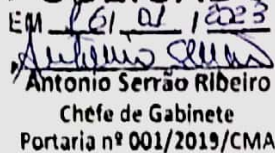 EM 16/01/2023
Antonio Serrão Ribeiro
Chefe de Gabinete
Portaria nº 001/2019/CMA